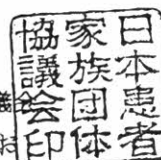 日本患者
家族団体
協議会印